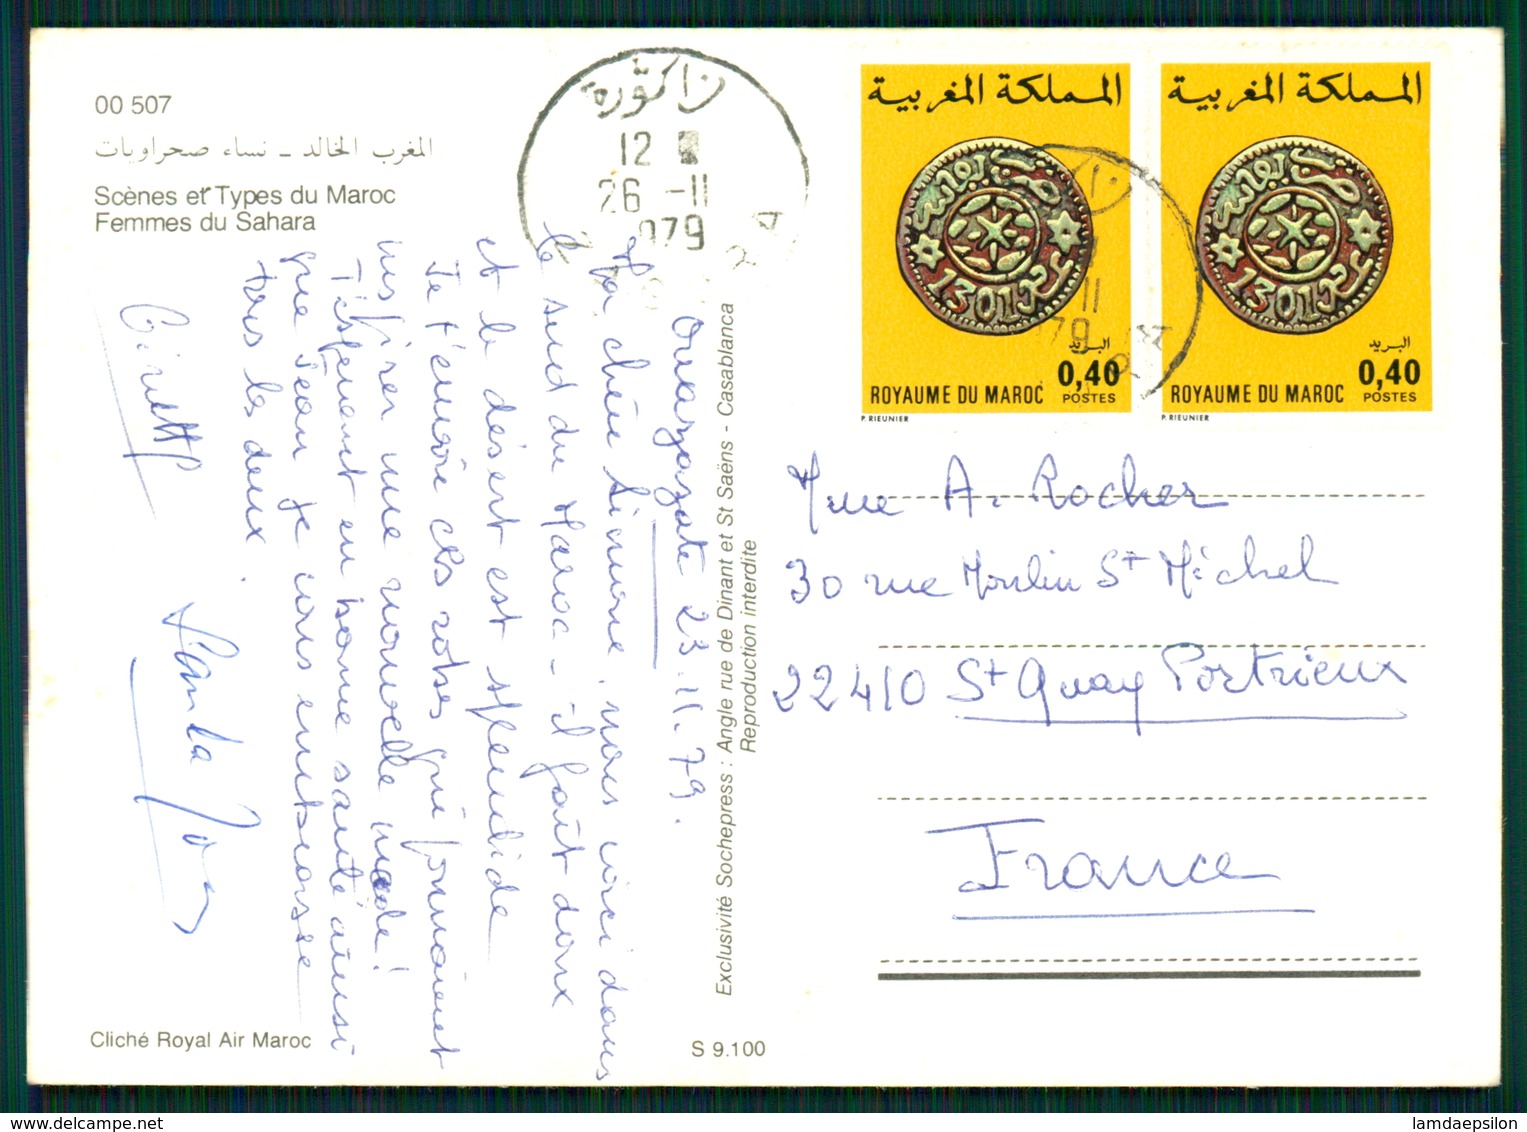 00 507
المغرب الخالد - نساء صحراويات
Scènes et Types du Maroc
Femmes du Sahara
زاكورة
12
26 -11
979
المملكة المغربية
1301
البريد
0,40
ROYAUME DU MAROC
POSTES
P. RIEUNIER
المملكة المغربية
1301
البريد
0,40
ROYAUME DU MAROC
POSTES
P. RIEUNIER
11
79
Ouarzazate 23.11.79.
Ma chère Simone, nous voici dans
le sud du Maroc - il fait doux
et le désert est splendide
Je t'envoie ces robes qui pourraient
inspirer une nouvelle mode!
T'espérant en bonne santé ainsi
que Jean je vous embrasse
tous les deux.
Ginette
Exclusivité Sochepress : Angle rue de Dinant et St Saëns - Casablanca
Reproduction interdite
Mme A. Rocher
30 rue Moulin St Michel
22410 St Quay Portrieux
France
Cliché Royal Air Maroc
S 9.100
www.delcampe.net
lamdaepsilon